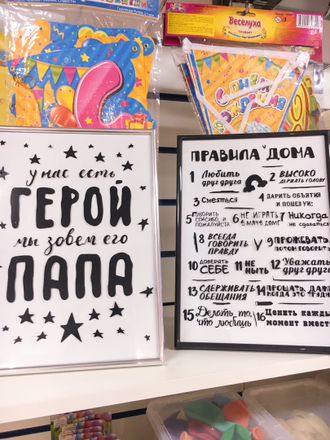 Веселуха
С Днём
Рождения
у нас есть
ГЕРОЙ
мы зовем его
ПАПА
ПРАВИЛА ДОМА
1 Любить
друг друга
2 ВЫСОКО
ДЕРЖАТЬ ГОЛОВУ
3 Смеяться
4 ДАРИТЬ ОБЪЯТИЯ
И ПОЦЕЛУИ
5 ГОВОРИТЬ
СПАСИБО, И
ПОЖАЛУЙСТА
6 НЕ ИГРАТЬ
В МЯЧ В ДОМЕ
7 Никогда
не сдаваться
8 ВСЕГДА
ГОВОРИТЬ
ПРАВДУ
9 ПРОЖЕВАТЬ,
ПОТОМ ГОВОРИТЬ
10 ДОВЕРЯТЬ
СЕБЕ
11 НЕ
НЫТЬ
12 Уважать
друг друга
13 СДЕРЖИВАТЬ
ОБЕЩАНИЯ
14 ПРОЩАТЬ, ДАЖЕ
КОГДА ЭТО ТРУДНО
15 Делать то,
что любишь
16 Ценить каждый
момент вместе